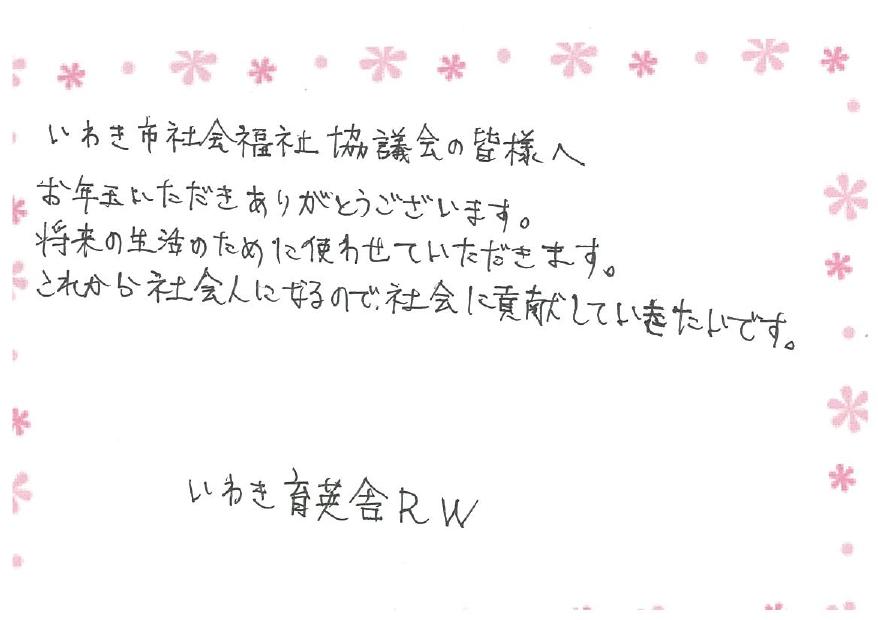 いわき市社会福祉協議会の皆様へ
お年玉いただきありがとうございます。
将来の生活のために使わせていただきます。
これから社会人になるので、社会に貢献していきたいです。
いわき育英舎RW